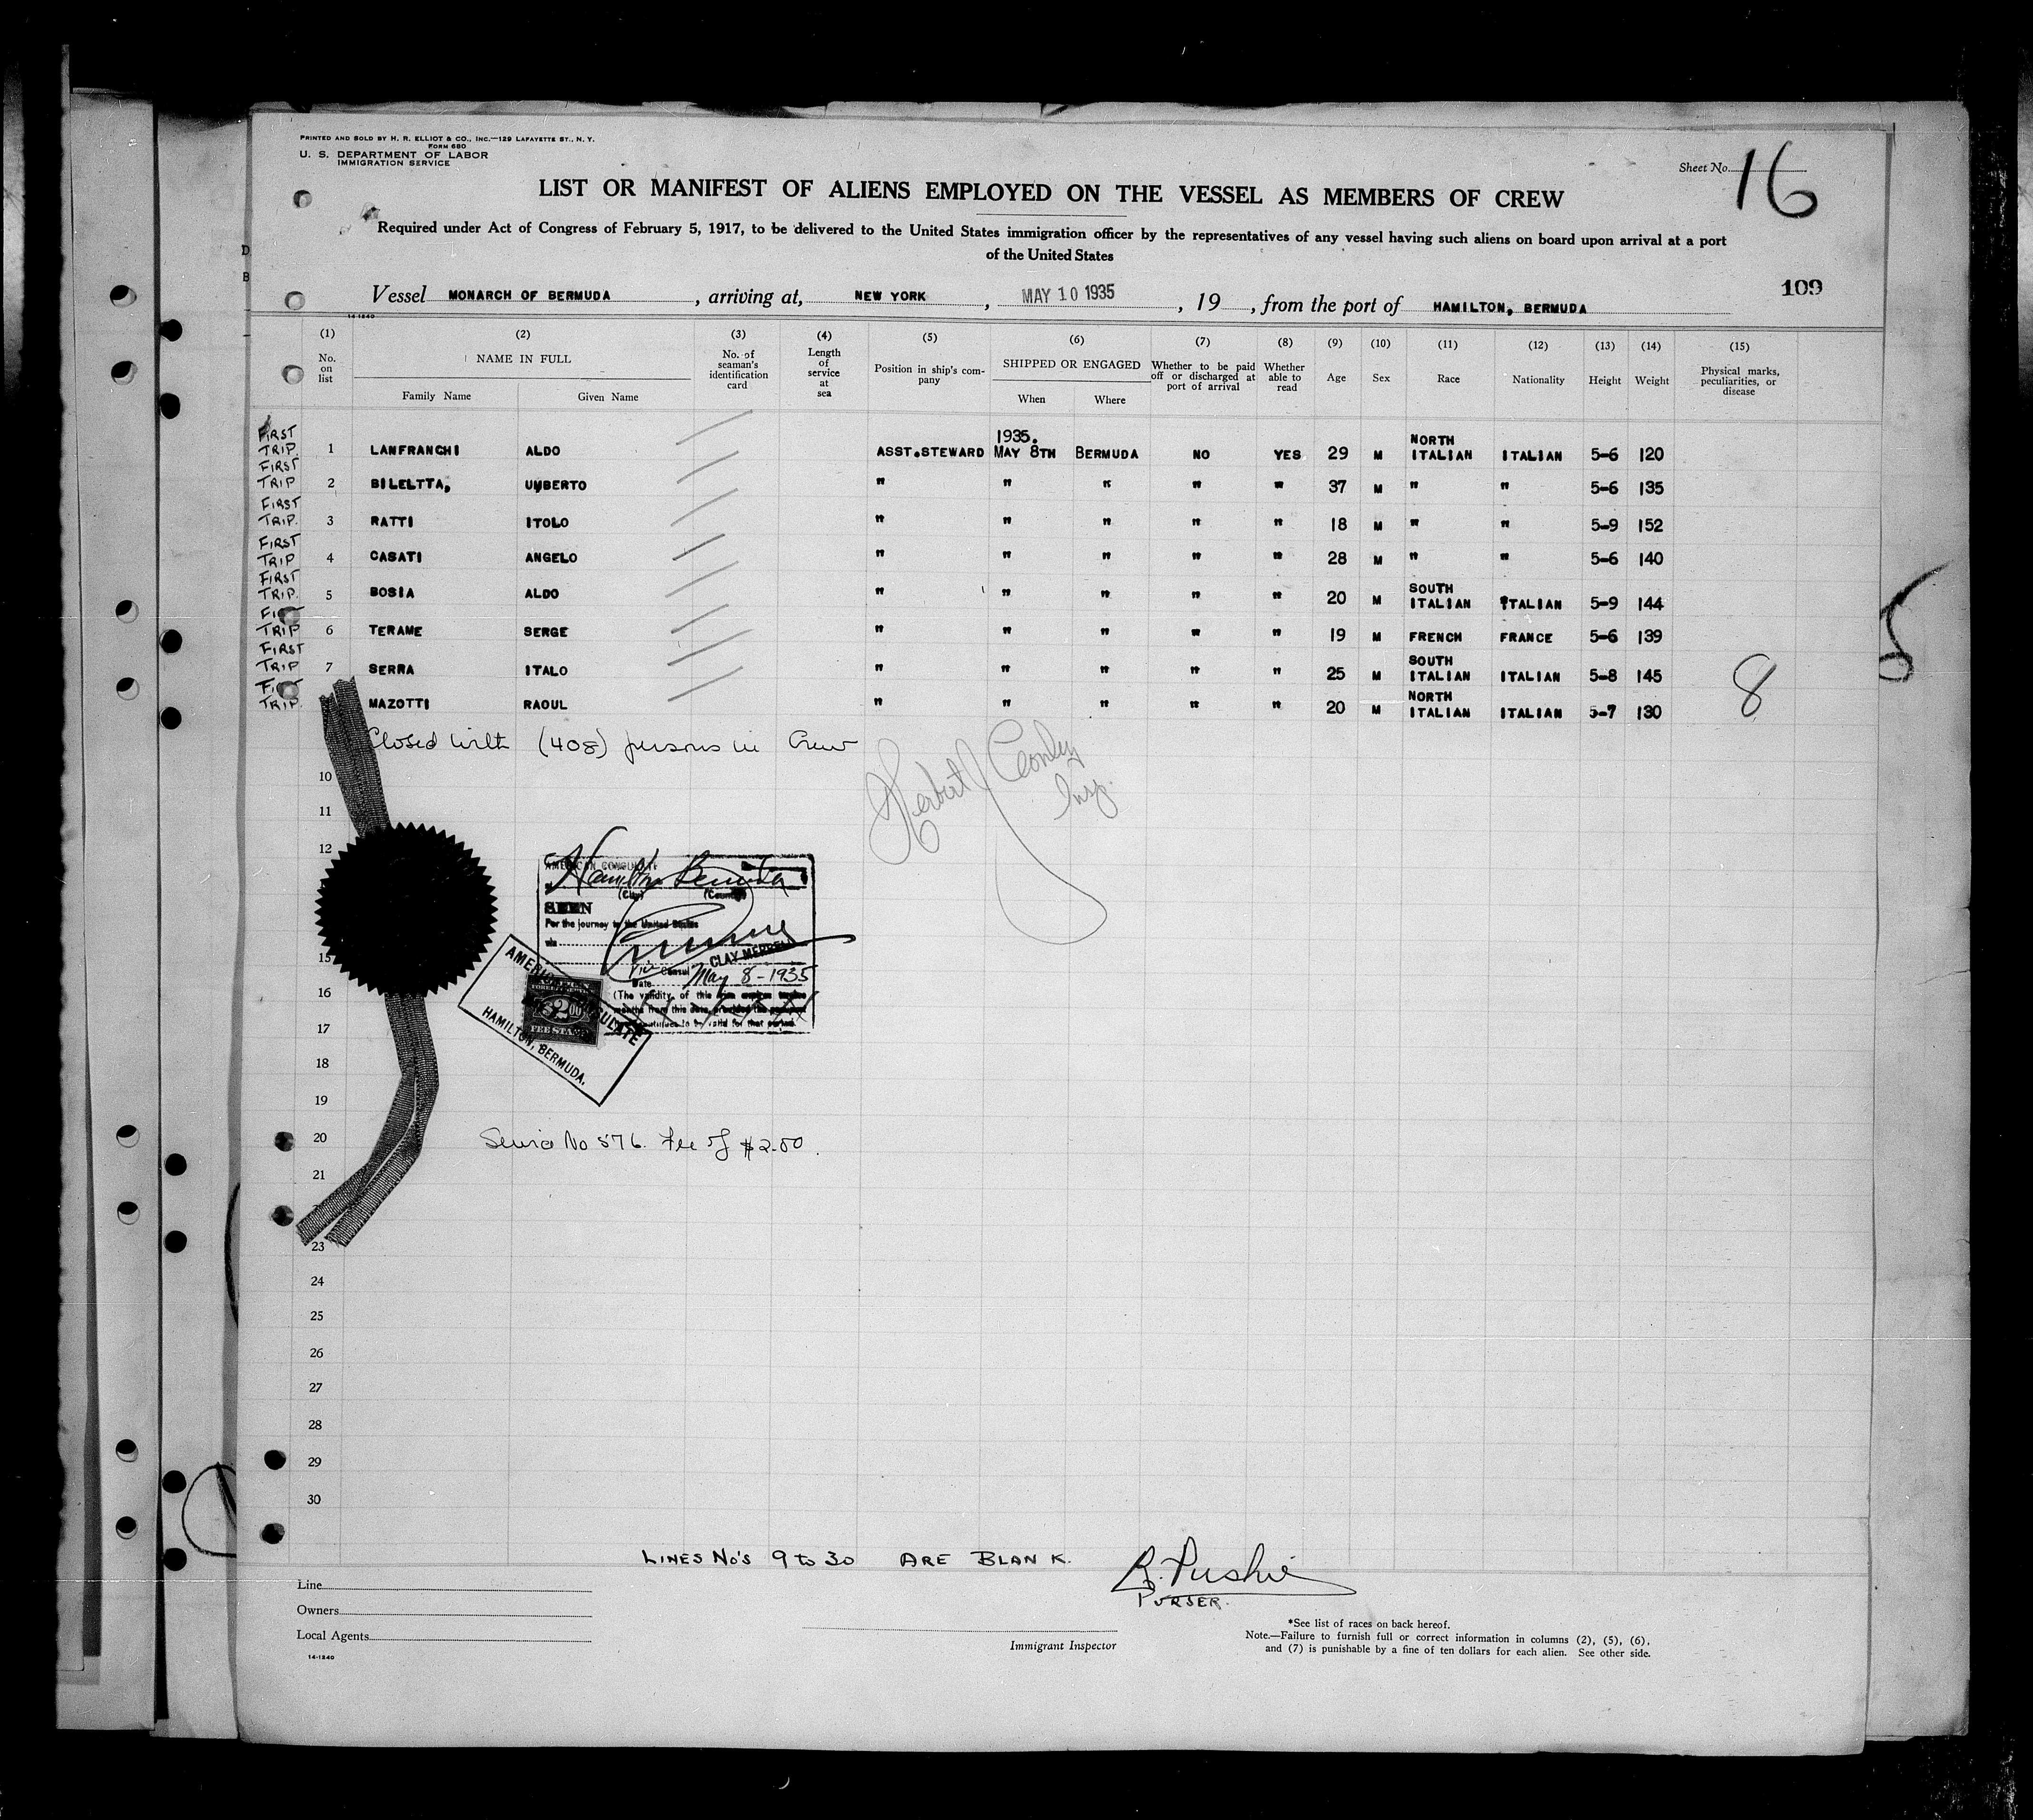 PRINTED AND SOLD BY H. R. ELLIOT & CO., INC.—129 LAFAYETTE ST., N. Y.
FORM 680
U. S. DEPARTMENT OF LABOR
IMMIGRATION SERVICE
Sheet No. 16
LIST OR MANIFEST OF ALIENS EMPLOYED ON THE VESSEL AS MEMBERS OF CREW
Required under Act of Congress of February 5, 1917, to be delivered to the United States immigration officer by the representatives of any vessel having such aliens on board upon arrival at a port
of the United States
109
Vessel MONARCH OF BERMUDA, arriving at, NEW YORK, MAY 10 1935, 19, from the port of HAMILTON, BERMUDA
14-1240
(1) (2) (3) (4) (5) (6) (7) (8) (9) (10) (11) (12) (13) (14) (15)
No. on list NAME IN FULL Family Name Given Name No. of seaman's identification card Length of service at sea Position in ship's company SHIPPED OR ENGAGED When Where Whether to be paid off or discharged at port of arrival Whether able to read Age Sex Race Nationality Height Weight Physical marks, peculiarities, or disease
FIRST TRIP. 1 LANFRANCHI ALDO ASST.STEWARD 1935. MAY 8TH BERMUDA NO YES 29 M NORTH ITALIAN ITALIAN 5-6 120
FIRST TRIP 2 BILELTTA, UMBERTO " " " " " 37 M " " 5-6 135
FIRST TRIP. 3 RATTI ITOLO " " " " " 18 M " " 5-9 152
FIRST TRIP 4 CASATI ANGELO " " " " " 28 M " " 5-6 140
FIRST TRIP. 5 BOSIA ALDO " " " " " 20 M SOUTH ITALIAN ITALIAN 5-9 144
FIRST TRIP 6 TERAME SERGE " " " " " 19 M FRENCH FRANCE 5-6 139
FIRST TRIP 7 SERRA ITALO " " " " " 25 M SOUTH ITALIAN ITALIAN 5-8 145
FIRST TRIP. MAZOTTI RAOUL " " " " " 20 M NORTH ITALIAN ITALIAN 5-7 130
8
5
Closed with (408) persons in Crew
Herbert J Conley
Insp.
10
11
12
15
16
17
18
19
20
21
23
24
25
26
27
28
29
30
AMERICAN CONSULATE
Hamilton Bermuda
(City) (Country)
SEEN
For the journey to the United States
via
CLAY MERRELL
Vice Consul
Date May 8-1935
(The validity of this
months from this date, provided the
continues to be valid for that period.
AMERICAN CONSULATE
HAMILTON, BERMUDA.
$2.00
FEE STAMP
Service No 576. Fee of $2.00.
LINES No's 9 to 30 ARE BLANK.
R. Pushie
PURSER.
Line
Owners
Local Agents
14-1240
Immigrant Inspector
*See list of races on back hereof.
Note.—Failure to furnish full or correct information in columns (2), (5), (6),
and (7) is punishable by a fine of ten dollars for each alien. See other side.